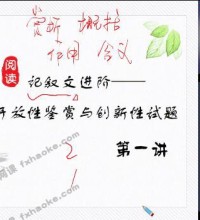 赏析 概括
作用 含义
阅读
记叙文进阶——
开放性鉴赏与创新性试题
2
第一讲
1
fxhaoke.com